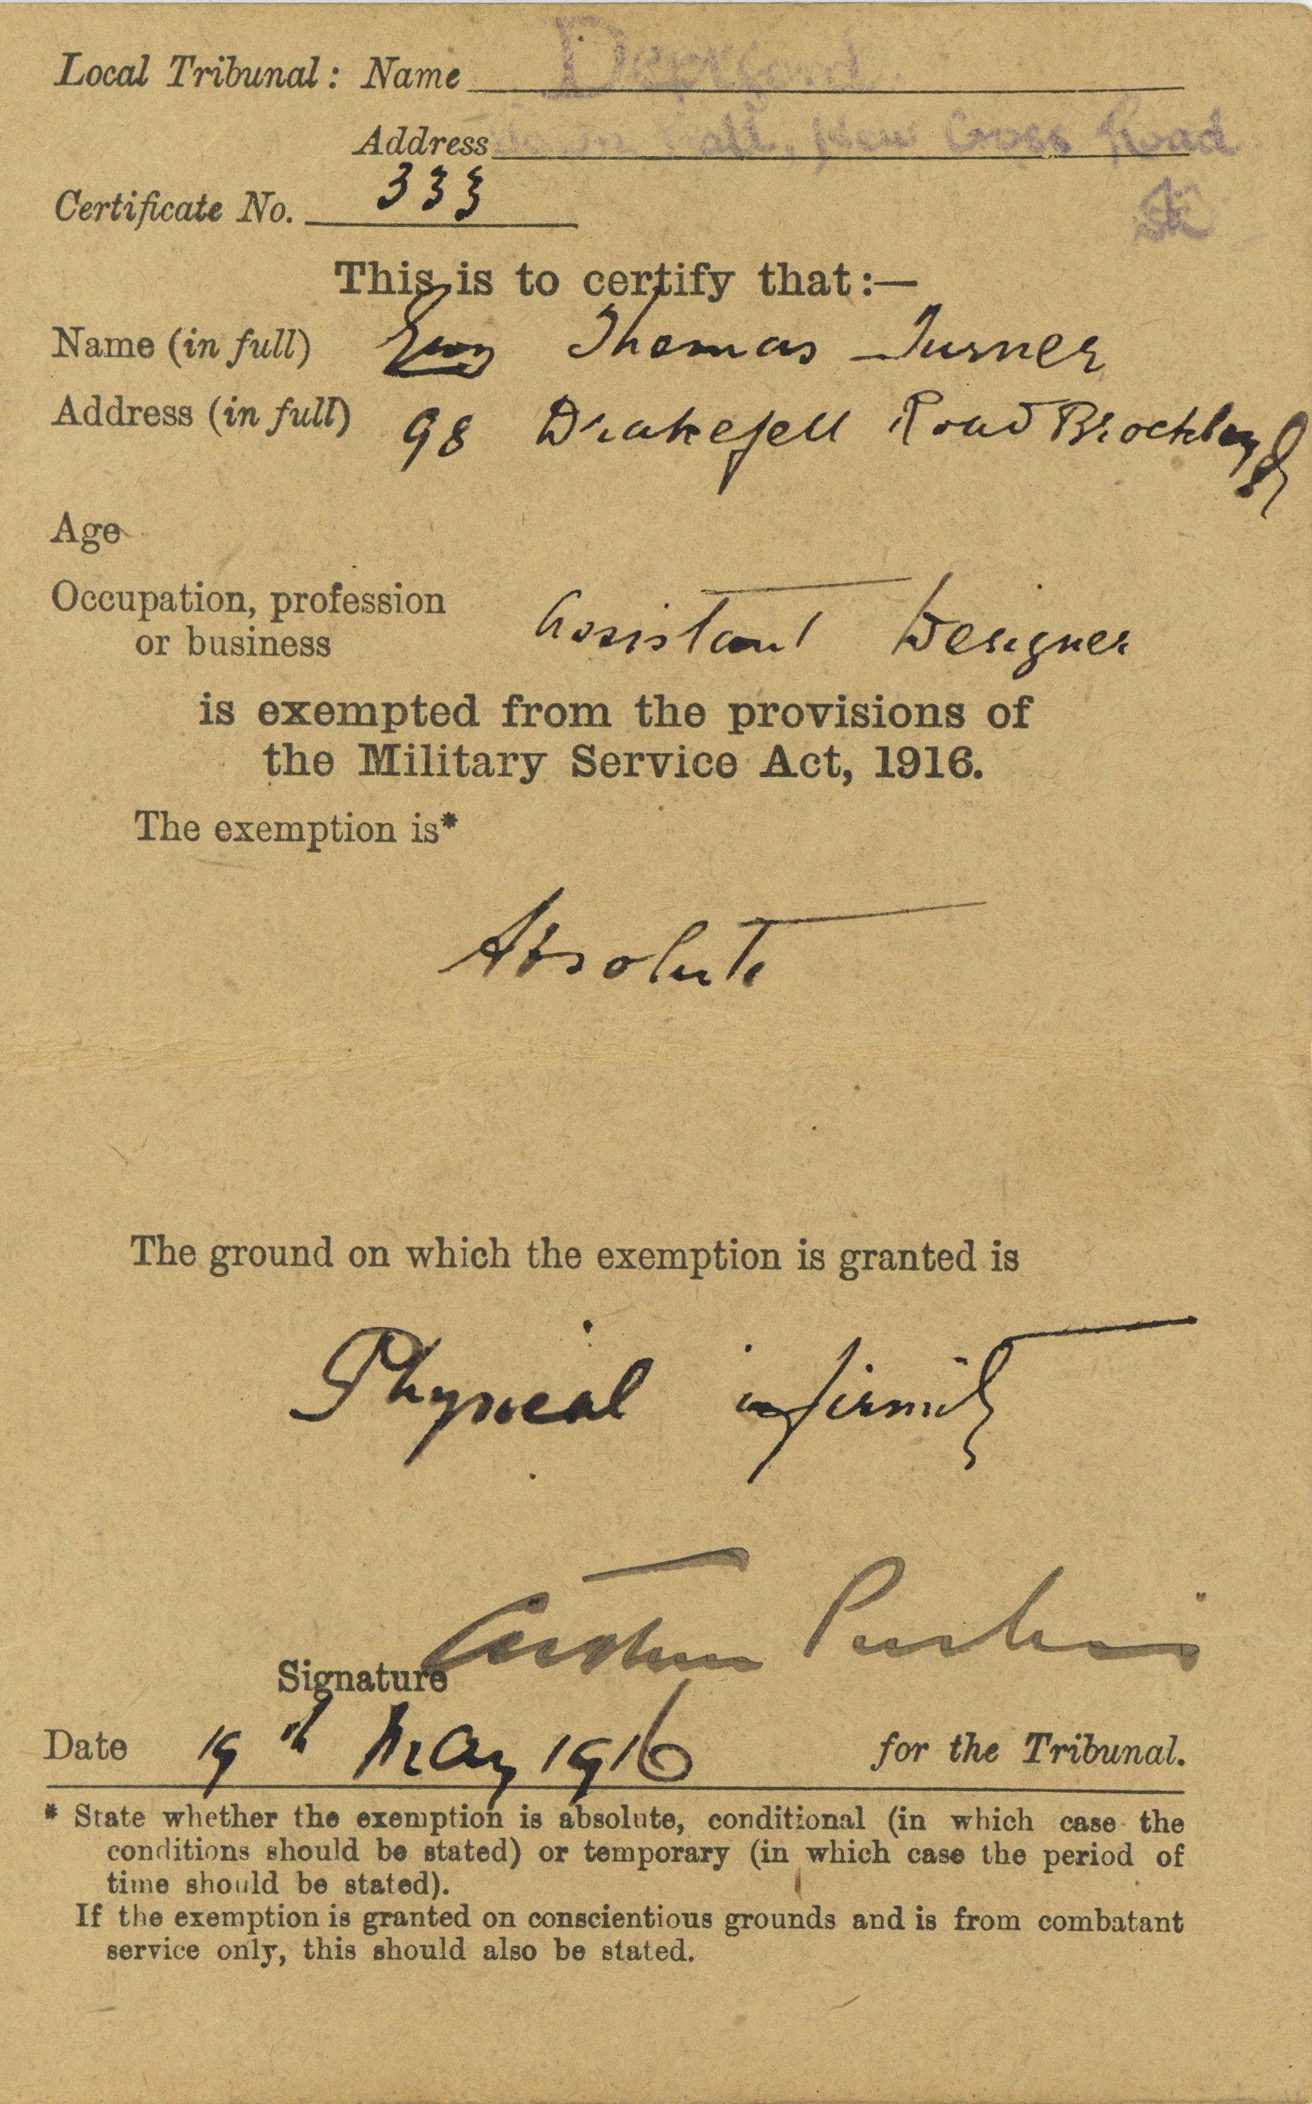 Local Tribunal: Name Deptford
Address Town Hall, New Cross Road
Certificate No. 333
This is to certify that:—
Name (in full) Thomas Turner
Address (in full) 98 Drakefell Road Brockley
Age
Occupation, profession
or business Assistant Designer
is exempted from the provisions of
the Military Service Act, 1916.
The exemption is*
Absolute
The ground on which the exemption is granted is
Physical infirmity
Signature Arthur
Date 19th May 1916 for the Tribunal.
* State whether the exemption is absolute, conditional (in which case the
conditions should be stated) or temporary (in which case the period of
time should be stated).
If the exemption is granted on conscientious grounds and is from combatant
service only, this should also be stated.